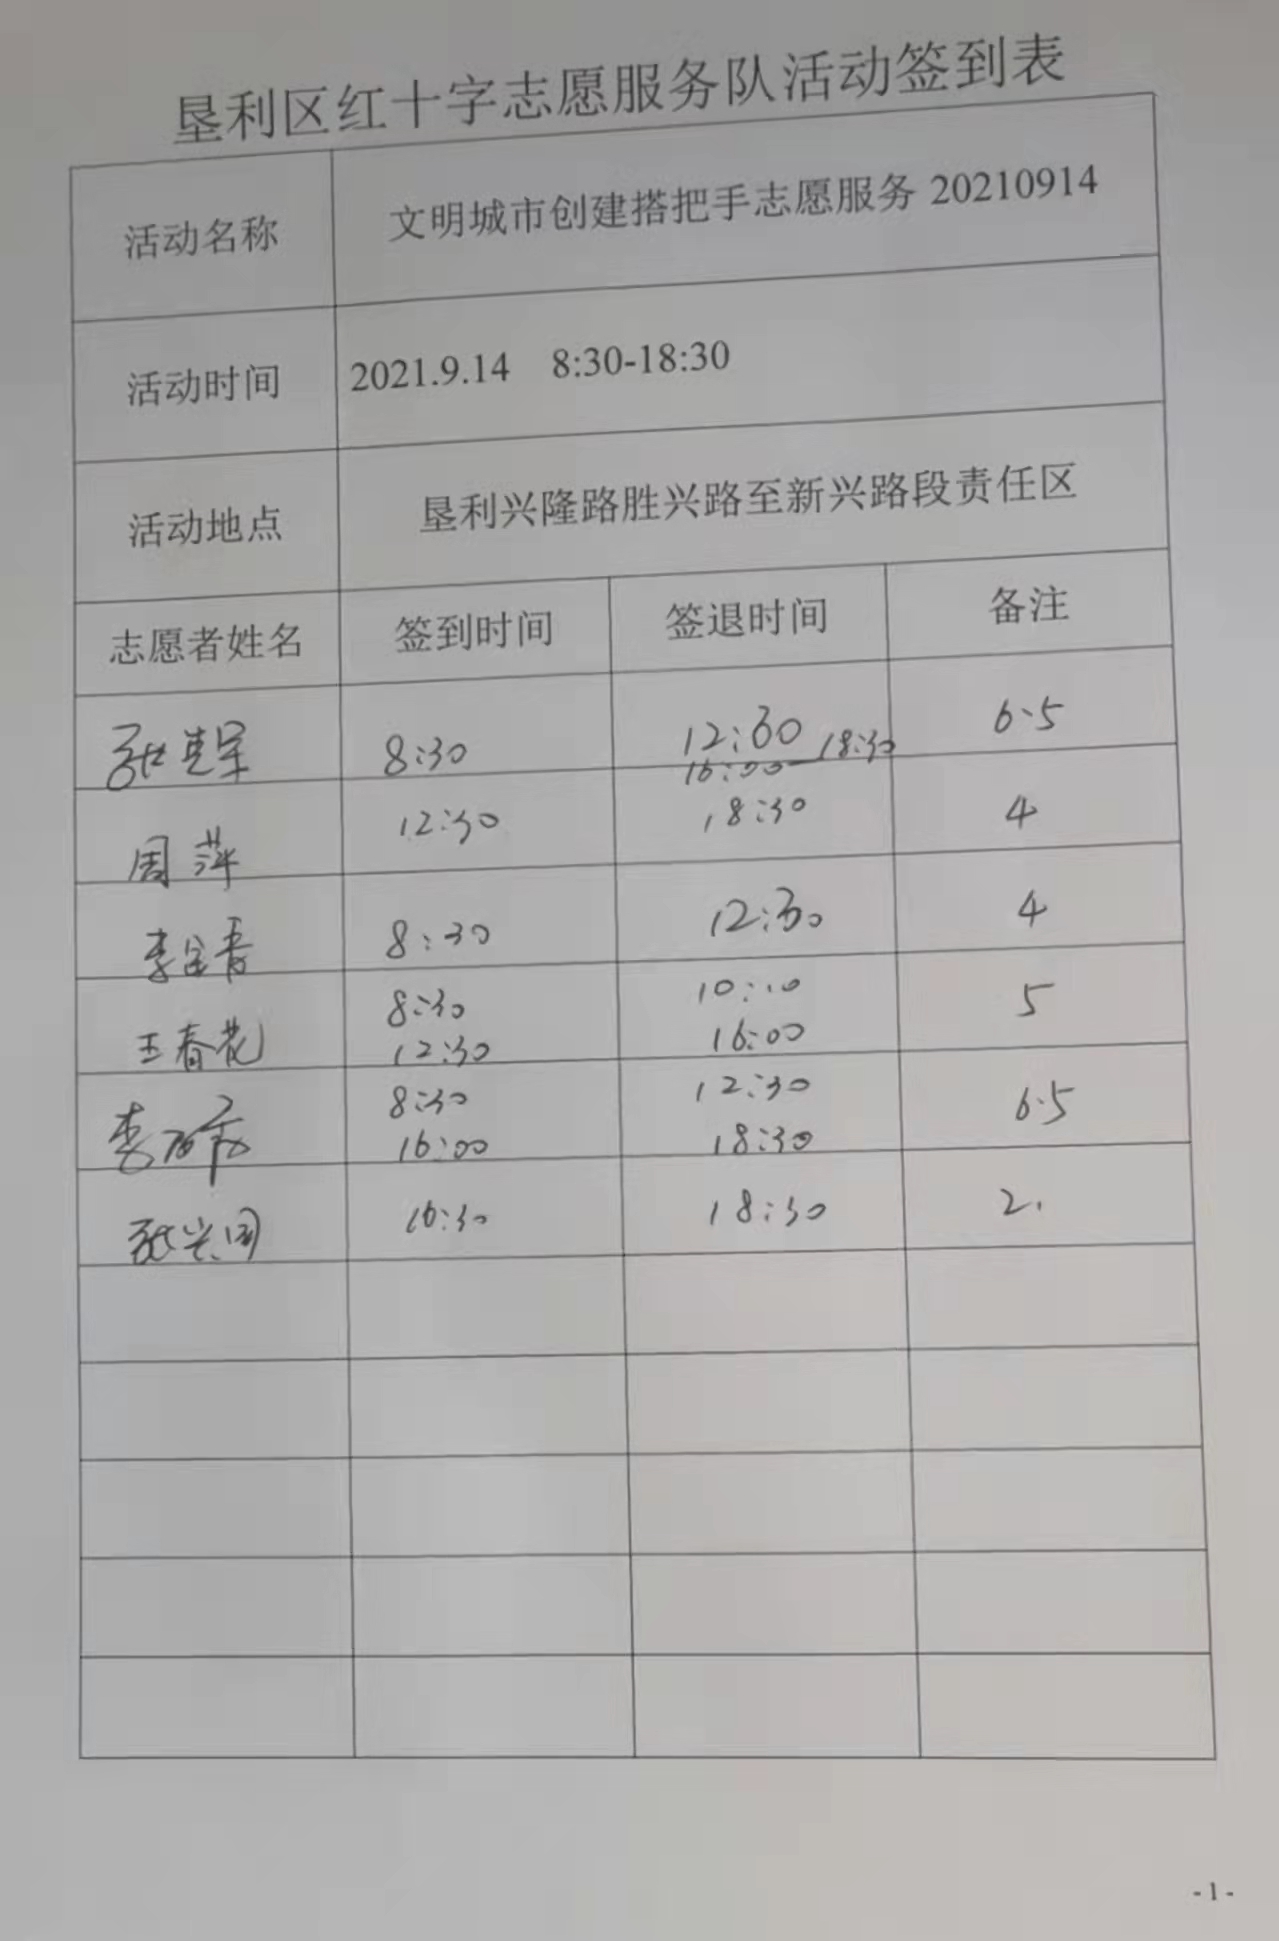 垦利区红十字志愿服务队活动签到表
活动名称 文明城市创建搭把手志愿服务 20210914
活动时间 2021.9.14 8:30-18:30
活动地点 垦利兴隆路胜兴路至新兴路段责任区
志愿者姓名 签到时间 签退时间 备注
8:30 12:30 6.5
16:00—18:30
周萍 12:30 18:30 4
李 8:30 12:30 4
王春花 8:30 10:10 5
12:30 16:00
李 8:30 12:30 6.5
16:00 18:30
张兴国 16:30 18:30 2.
- 1 -